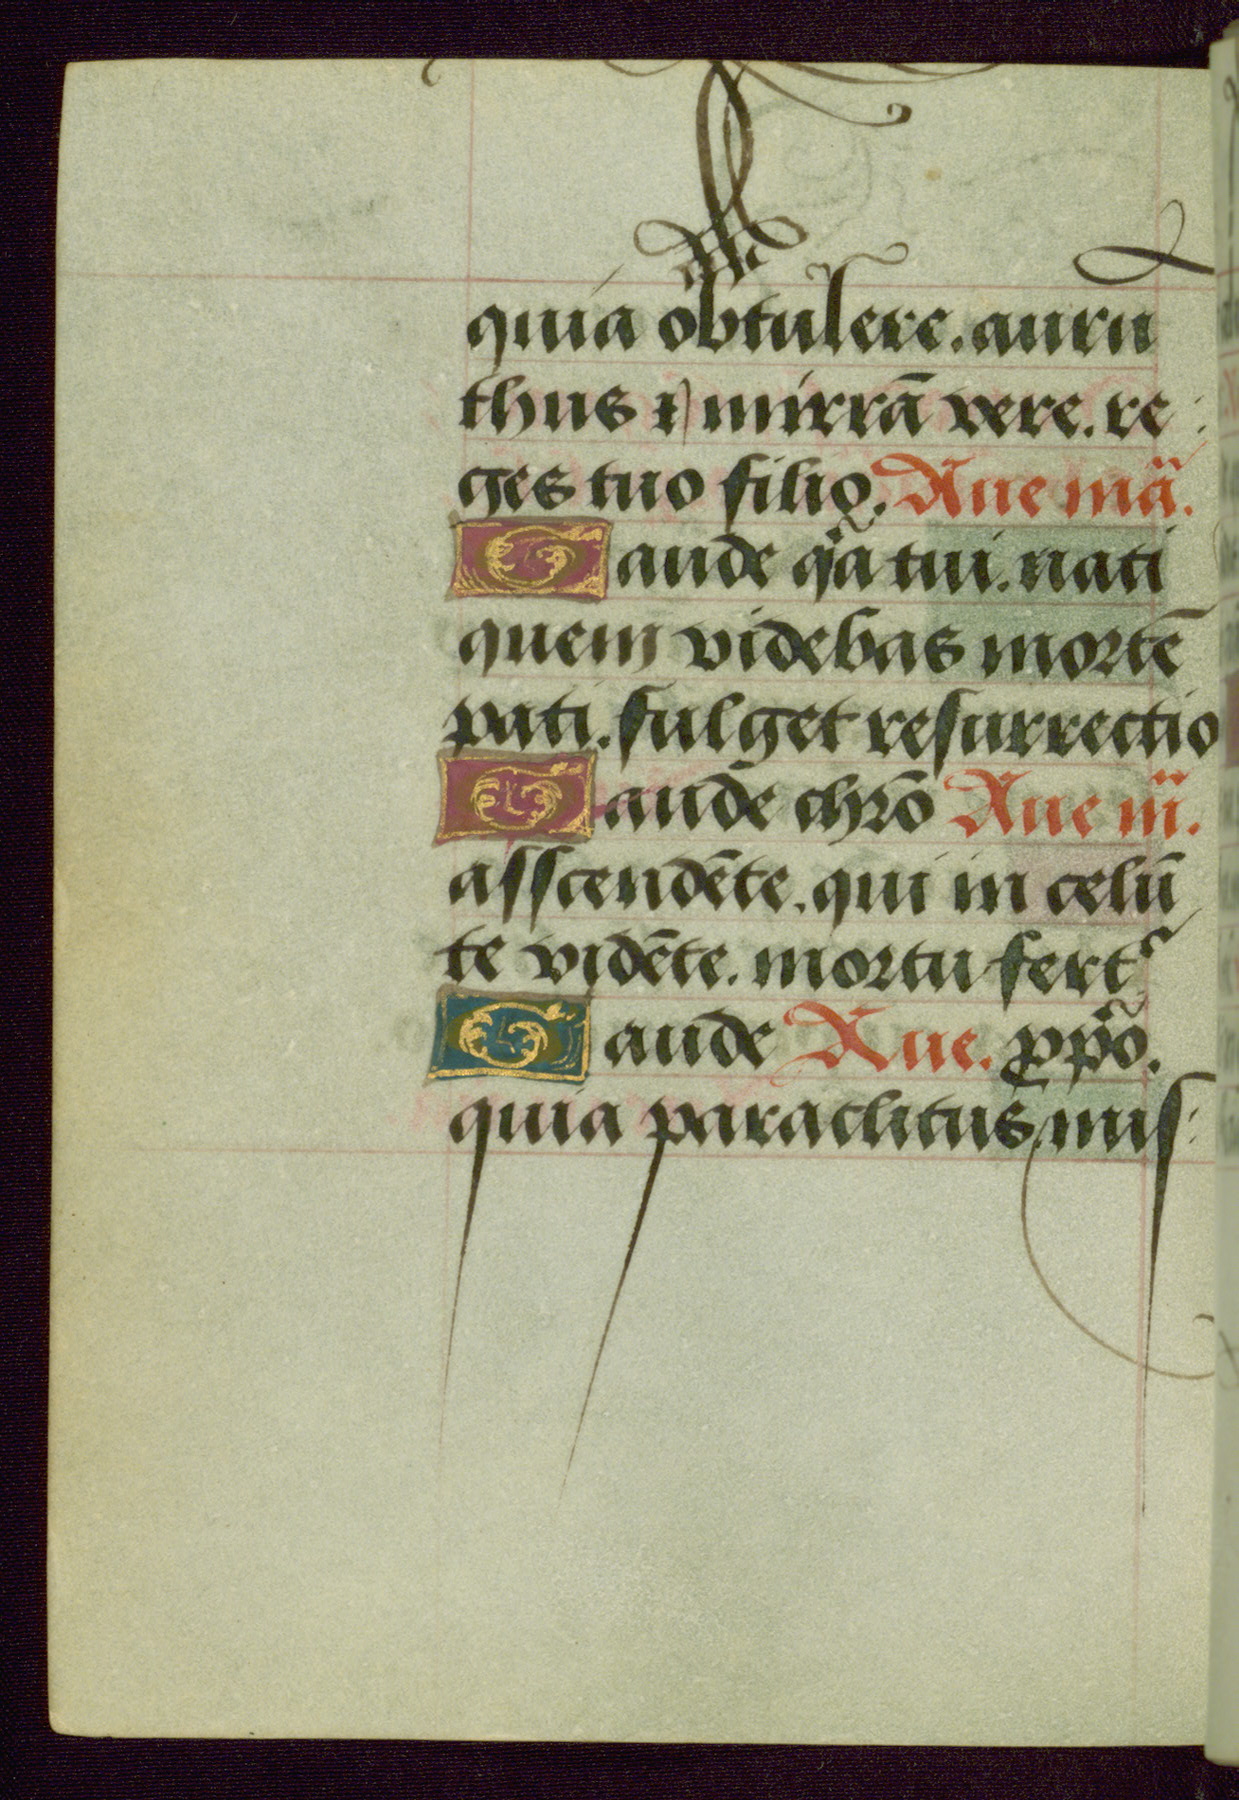 quia obtulere. auru
thus ⁊ mirrā vere. re
ges tuo filio. Aue mā.
Gaude qa tui. nati
quem videbas mortē
pati. fulget resurrectio
Gaude chrō Aue m.
asscendēte. qui in celū
te vidēte. mortu fert
Gaude Aue. ppō.
quia paraclitus mis